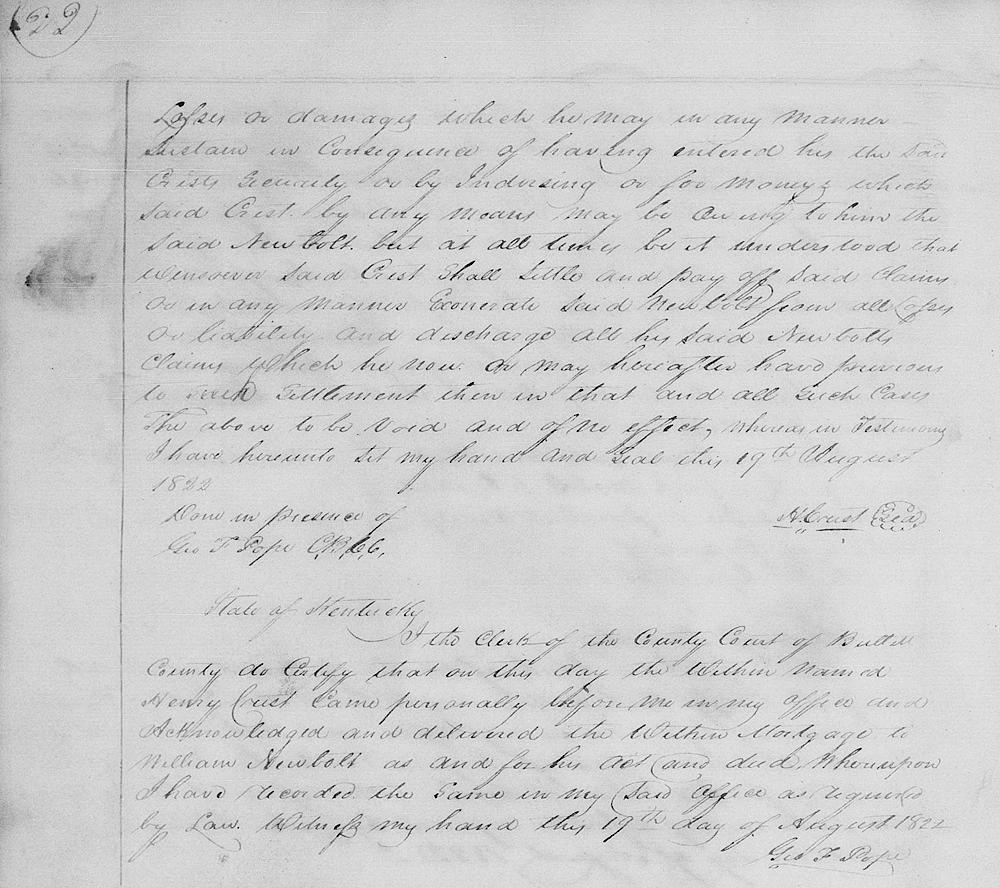 22
Losses or damages which he may in any manner
Sustain in Consequence of having entered his the Said
Crists Security or by Indorsing or for Moneys which
Said Crist. by any means may be owing to him the
Said Newbolt. but at all times be it understood that
Whensoever Said Crist Shall Settle and pay off Said Claims
Or in any Manner Exonerate Said Newbolt from all losses
Or liability and discharge all his Said Newbolts
Claims Which he now. or may hereafter have previous
to Such Settlement then in that and all Such Cases
The above to be Void and of no effect, Whereas in Testimony
I have hereunto Set my hand and Seal this 19th August
1822
Done in presence of H Crist Seal
Geo F Pope C.B.C.C.
State of Kentucky
I the Clerk of the County Court of Bullitt
County do Certify that on this day the Within Named
Henry Crist Came personally before me in my office and
Acknowledged and delivered the Within Mortgage to
William Newbolt as and for his act and deed. Whereupon
I have recorded the Same in my Said Office as required
by Law. Witness my hand this 19th day of August 1822
Geo F Pope